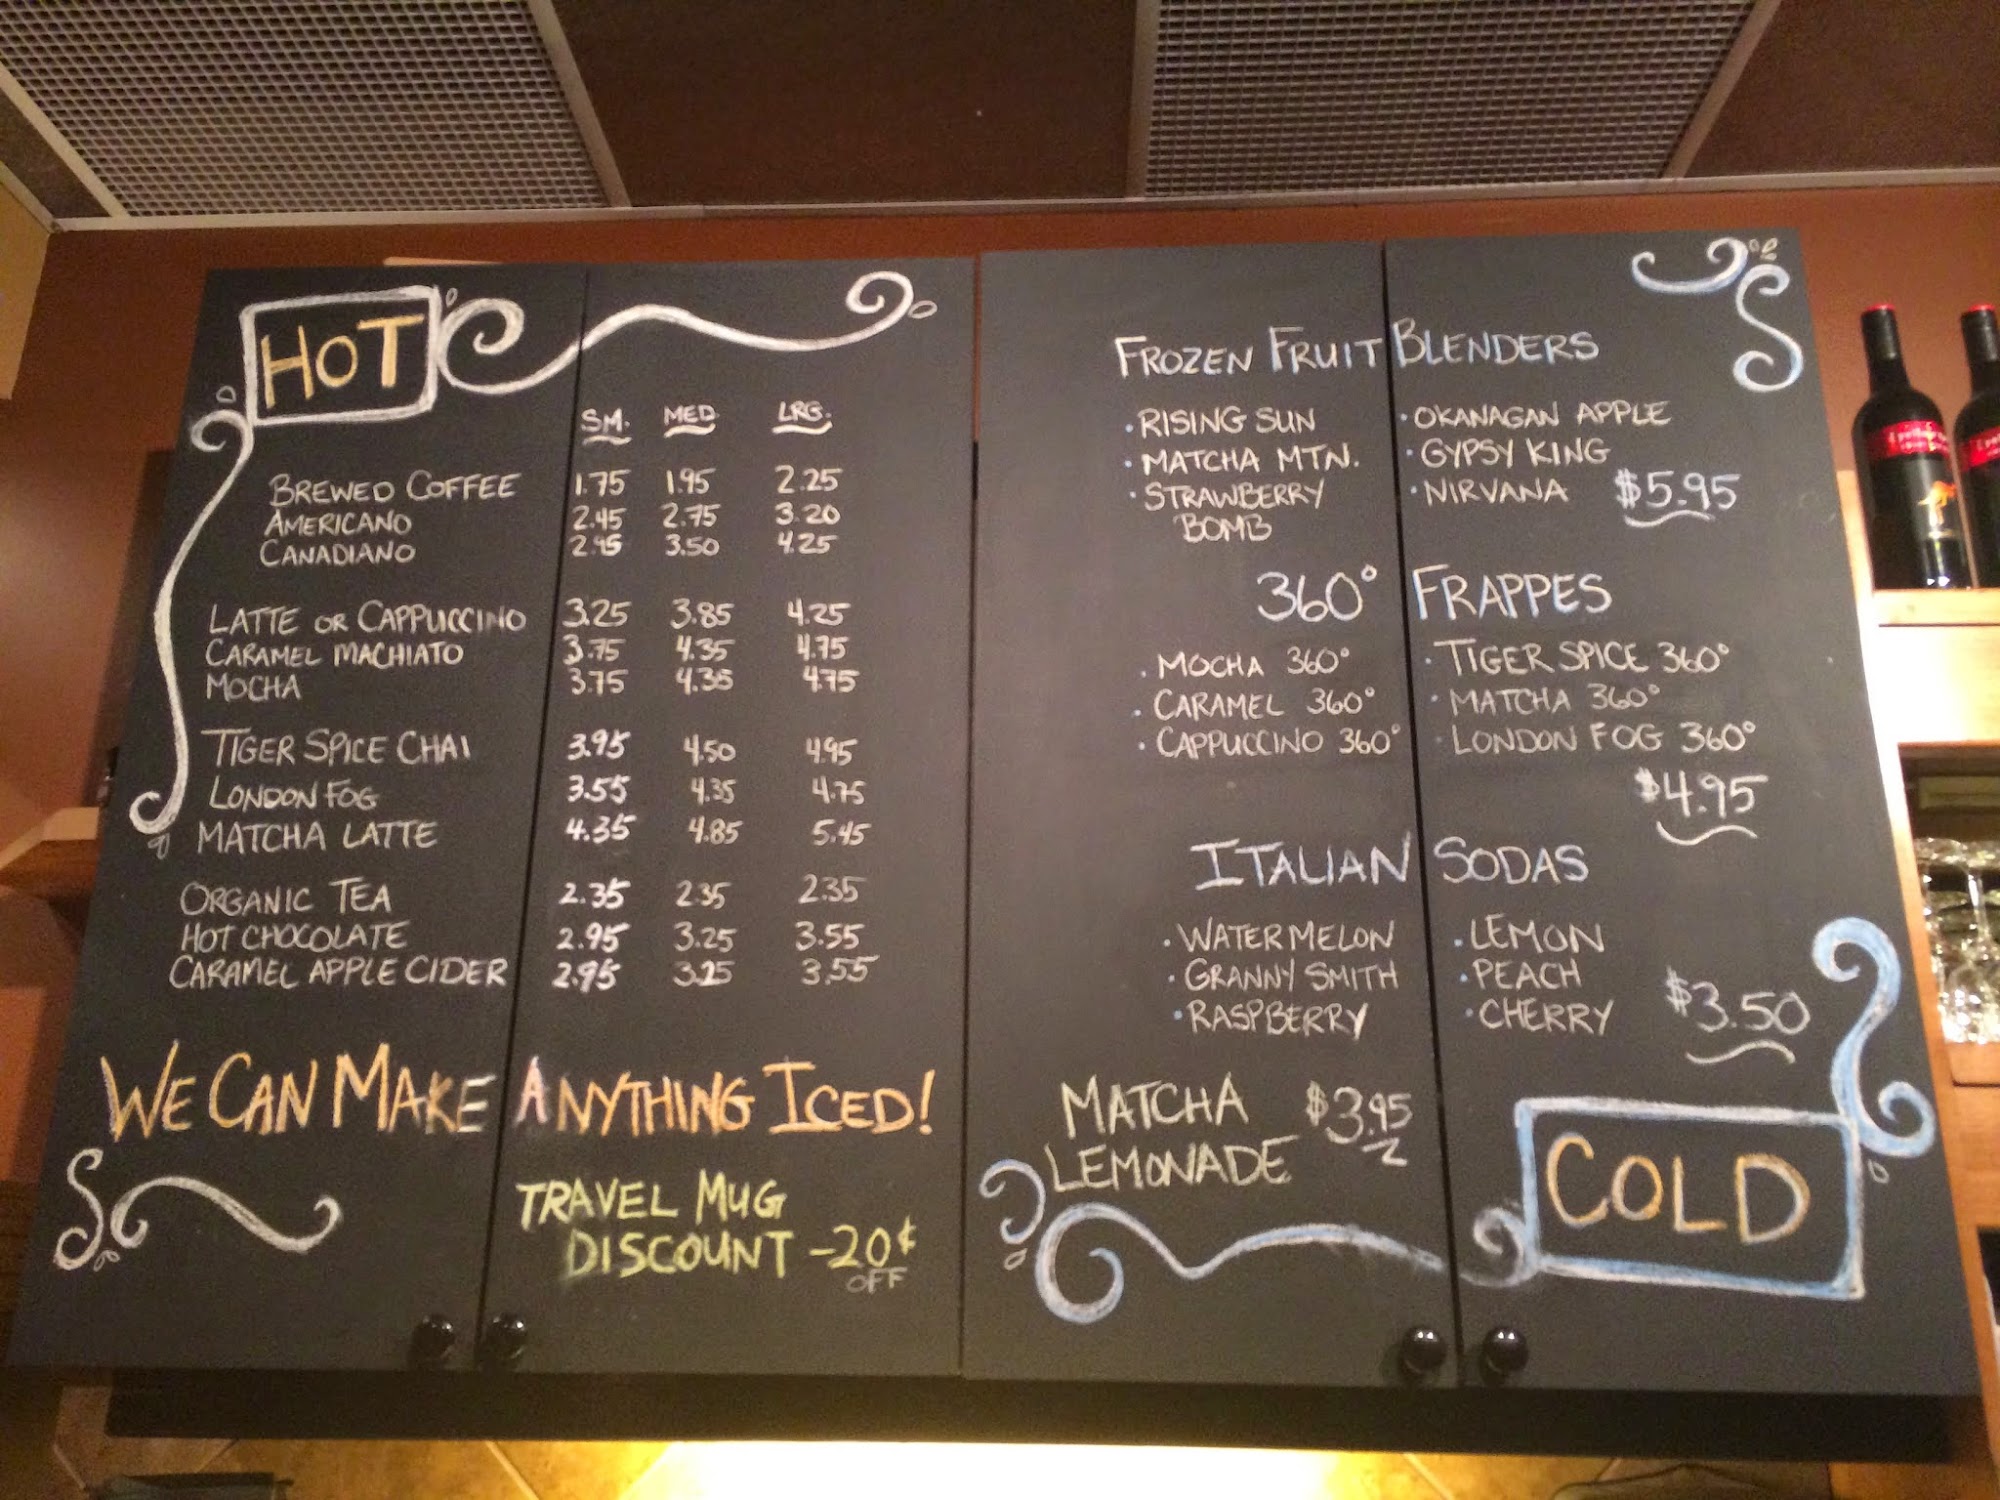 HOT
SM. MED. LRG.
BREWED COFFEE 1.75 1.95 2.25
AMERICANO 2.45 2.75 3.20
CANADIANO 2.95 3.50 4.25
LATTE OR CAPPUCCINO 3.25 3.85 4.25
CARAMEL MACHIATO 3.75 4.35 4.75
MOCHA 3.75 4.35 4.75
TIGER SPICE CHAI 3.95 4.50 4.95
LONDON FOG 3.55 4.35 4.75
MATCHA LATTE 4.35 4.85 5.45
ORGANIC TEA 2.35 2.35 2.35
HOT CHOCOLATE 2.95 3.25 3.55
CARAMEL APPLE CIDER 2.95 3.25 3.55
WE CAN MAKE ANYTHING ICED!
TRAVEL MUG
DISCOUNT -20¢
OFF
FROZEN FRUIT BLENDERS
· RISING SUN · OKANAGAN APPLE
· MATCHA MTN. · GYPSY KING
· STRAWBERRY · NIRVANA $5.95
BOMB
360° FRAPPES
· MOCHA 360° · TIGER SPICE 360°
· CARAMEL 360° · MATCHA 360°
· CAPPUCCINO 360° · LONDON FOG 360°
$4.95
ITALIAN SODAS
· WATERMELON · LEMON
· GRANNY SMITH · PEACH
· RASPBERRY · CHERRY $3.50
MATCHA $3.95
LEMONADE
COLD